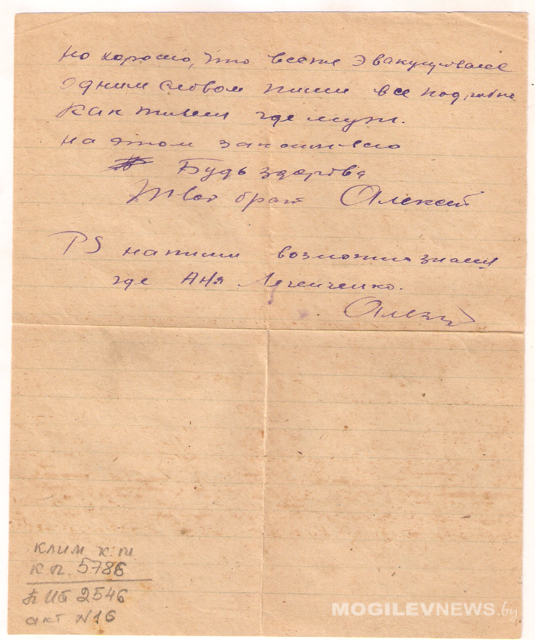 но хорошо, что всеже эвакуировалс
одним словом пиши все подробно
как живеш где муж.
на этом заканчиваю
Будь здорова
Твой брат Алексей
PS напиши возможно знаеш
где Аня
Алекс
клим к.м
К п. 5786
2546
акт N16
MOGILEVNEWS.by